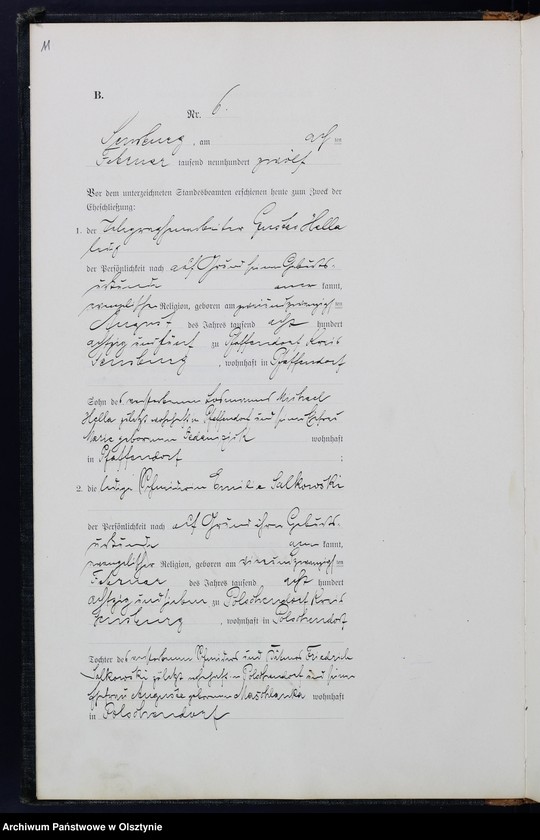 11
B.
Nr. 6.
Sensburg, am acht ten
Februar tausend neunhundert zwölf
Vor dem unterzeichneten Standesbeamten erschienen heute zum Zweck der
Eheschließung:
1. der Telegraphenarbeiter Gustav Hella
ledig
der Persönlichkeit nach auf Grund seiner Geburts-
urkunde aner kannt,
evangelischer Religion, geboren am ten
August des Jahres tausend acht hundert
achtzig und fünf zu Pfaffendorf Kreis
Sensburg, wohnhaft in Pfaffendorf
Sohn des verstorbenen Losmanns Michael
Hella zuletzt wohnhaft in Pfaffendorf und seiner Ehefrau
Marie geborenen wohnhaft
in Pfaffendorf;
2. die ledige Emilie Salkowski
der Persönlichkeit nach auf Grund ihrer Geburts-
urkunde aner kannt,
evangelischer Religion, geboren am ten
Februar des Jahres tausend acht hundert
achtzig und sieben zu Polschendorf Kreis
Sensburg, wohnhaft in Polschendorf
Tochter des verstorbenen und Friedrich
Salkowski zuletzt wohnhaft in Polschendorf und seiner
Ehefrau Auguste geborenen Maschlanka wohnhaft
in Polschendorf
Archiwum Państwowe w Olsztynie